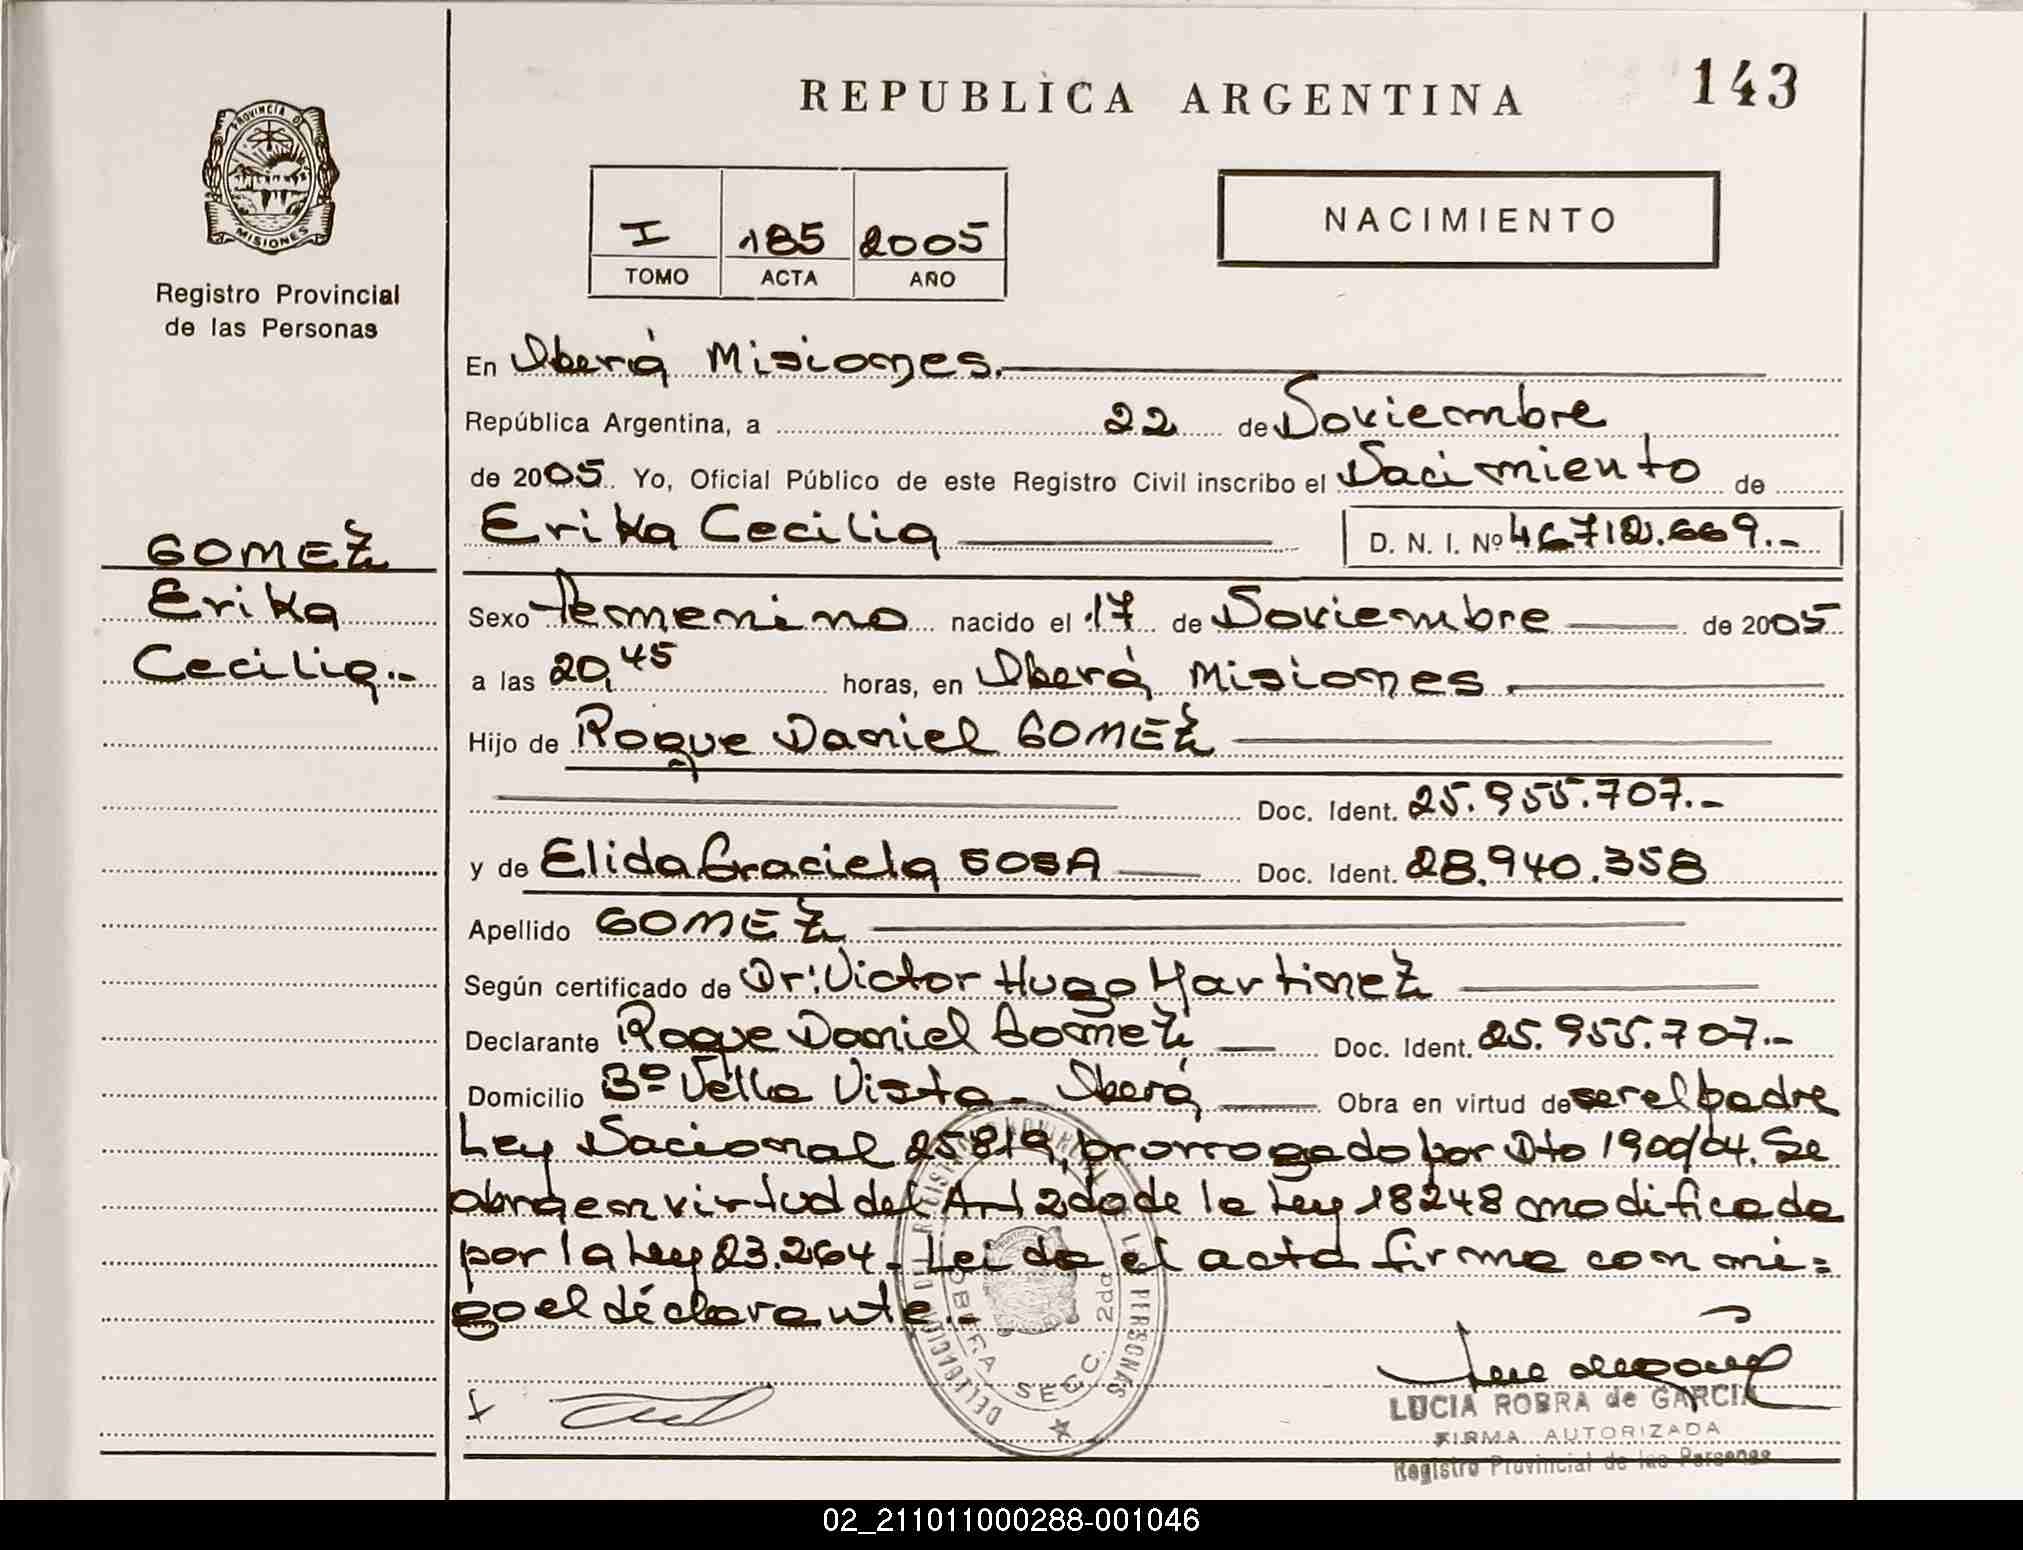 REPUBLICA ARGENTINA
143
PROVINCIA DE
MISIONES
Registro Provincial
de las Personas
I 185 2005
TOMO ACTA AÑO
NACIMIENTO
En Oberá Misiones.
República Argentina, a 22 de Noviembre
de 2005. Yo, Oficial Público de este Registro Civil inscribo el Nacimiento de
Erika Cecilia D. N. I. Nº
GOMEZ
Erika
Cecilia.-
Sexo Femenino nacido el 17 de Noviembre de 2005
a las 20,45 horas, en Oberá Misiones.
Hijo de Roque Daniel GOMEZ
Doc. Ident. 25.955.707.-
y de Elida Graciela SOSA Doc. Ident. 28.940.358
Apellido GOMEZ
Según certificado de Dr: Victor Hugo Martinez
Declarante Roque Daniel Gomez Doc. Ident. 25.955.707.-
Domicilio Bº Vella Vista - Oberá Obra en virtud de ser el padre
Ley Nacional 25.819, prorrogado por Dto 1900/04. Se
obra en virtud del Art 2do de la Ley 18248 modificada
por la Ley 23.264. Leida el acta firma conmi=
go el declarante.-
OBERA SECC. 2da
LUCIA ROBRA de GARCIA
FIRMA AUTORIZADA
Registro Provincial de las Personas
02_211011000288-001046